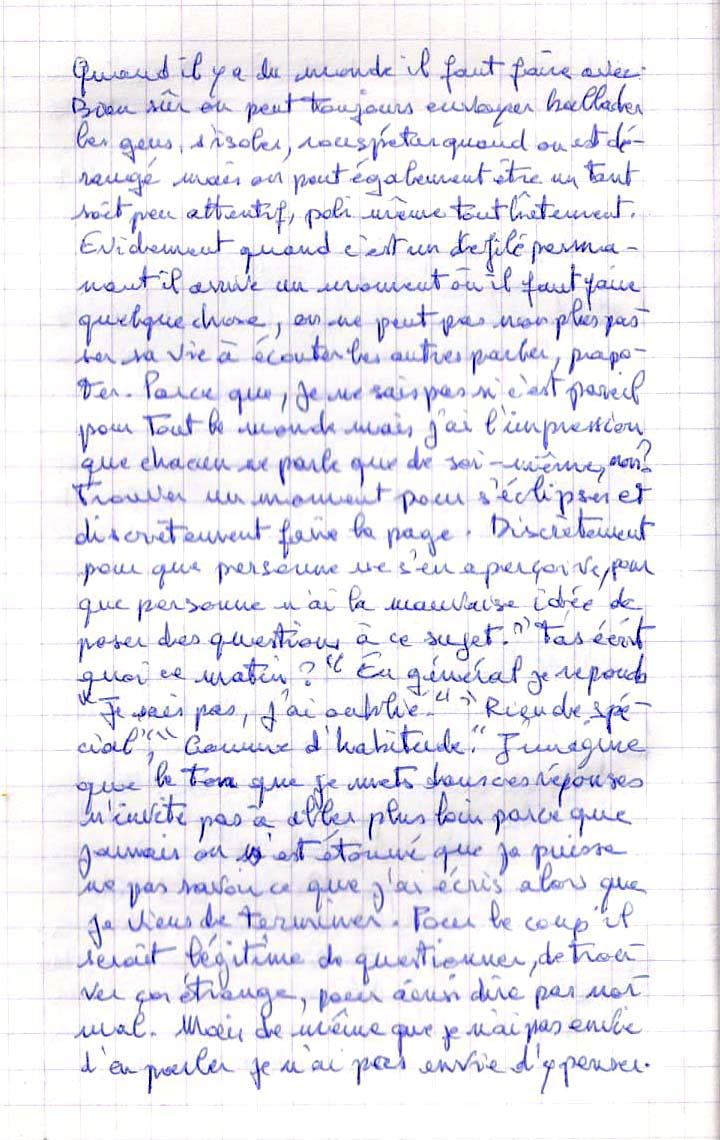 Quand il y a du monde il faut faire avec.
Bien sûr on peut toujours envoyer ballader
les gens, s'isoler, rouspéter quand on est dé-
rangé mais on peut également être un tant
soit peu attentif, poli même tout bêtement.
Evidemment quand c'est un défilé perma-
nant il arrive un moment où il faut faire
quelque chose, on ne peut pas non plus pas
ser sa vie à écouter les autres parler, papo-
ter. Parce que, je ne sais pas si c'est pareil
pour tout le monde mais j'ai l'impression
que chacun ne parle que de soi-même, non?
Trouver un moment pour s'éclipser et
discrètement faire la page. Discrètement
pour que personne ne s'en aperçoive, pour
que personne n'ai la mauvaise idée de
poser des questions à ce sujet. "T'as écrit
quoi ce matin?" En général je reponds
"Je sais pas, j'ai oublié." "Rien de spé-
cial", "Comme d'habitude." J'imagine
que le ton que je mets dans ces réponses
n'invite pas à aller plus loin parce que
jamais on s'est étonné que je puisse
ne pas savoir ce que j'ai écris alors que
je viens de terminer. Pour le coup il
serait légitime de questionner, de trou
ver ça étrange, pour ainsi dire pas nor
mal. Mais de même que je n'ai pas envie
d'en parler je n'ai pas envie d'y penser.